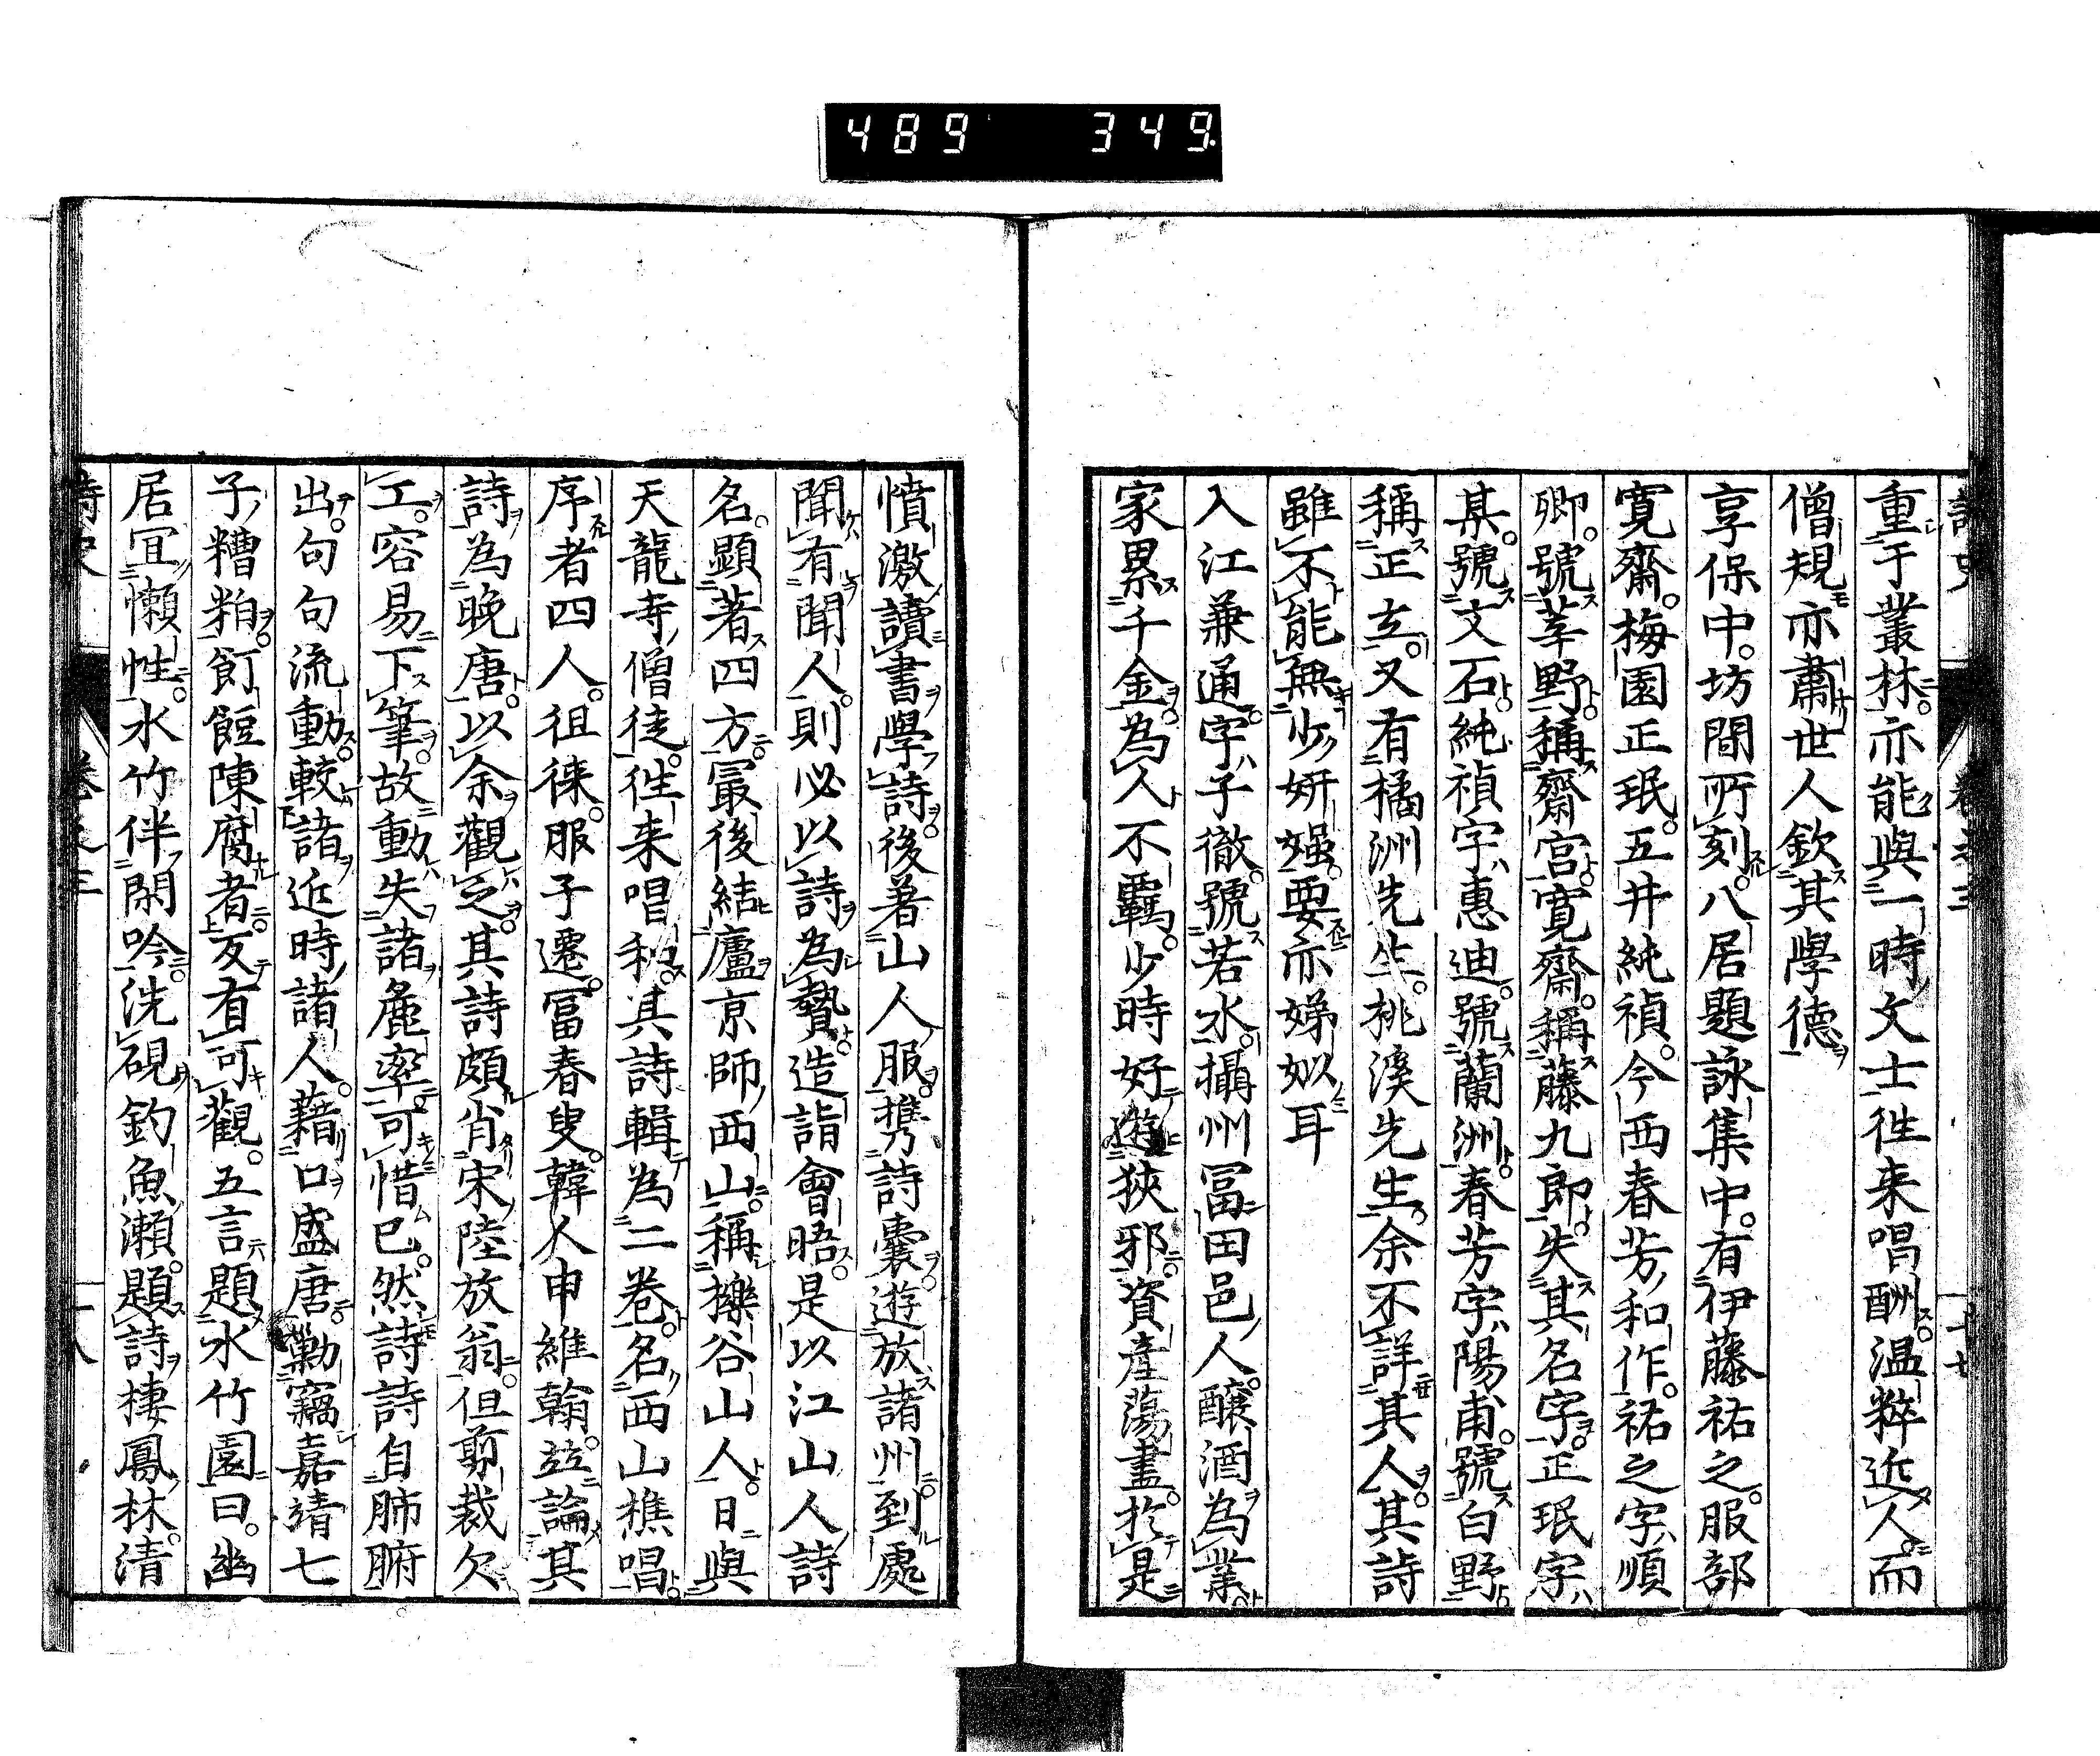 489 349
重于叢林亦能與一時文士徃来唱酬温粹近人而
僧規亦肅世人欽其學德
享保中坊間所刻八居題詠集中有伊藤祐之服部
寛齋梅園正珉五井純禎今西春芳和作祐之字順
卿號莘野稱齋宮寛齋稱藤九郎失其名字正珉字
某號文石純禎字惠迪號蘭洲春芳字陽甫號白野
稱正立又有橘洲先生桃溪先生余不詳其人其詩
雖不能無少妍媸要亦娣姒耳
入江兼通字子徹號若水攝州冨田邑人釀酒為業
家累千金為人不羈少時好遊狹邪資産蕩盡於是
憤激讀書學詩後著山人服携詩嚢遊放諸州到處
聞有聞人則必以詩為贄造詣會晤是以江山人詩
名顕著四方最後結廬京師西山稱擽谷山人日與
天龍寺僧徒徃来唱和其詩輯為二卷名西山樵唱
序者四人徂徠服子遷冨春叟韓人申維翰並論其
詩為晩唐以余觀之其詩頗肖宋陸放翁但剪裁欠
工容易下筆故動失諸麁率可惜已然詩詩自肺腑
出句句流動較諸近時諸人藉口盛唐勦竊嘉靖七
子糟粕飣餖陳腐者反有可觀五言題水竹園曰幽
居冝懶性水竹伴閑吟洗硯釣魚瀬題詩棲鳳林清